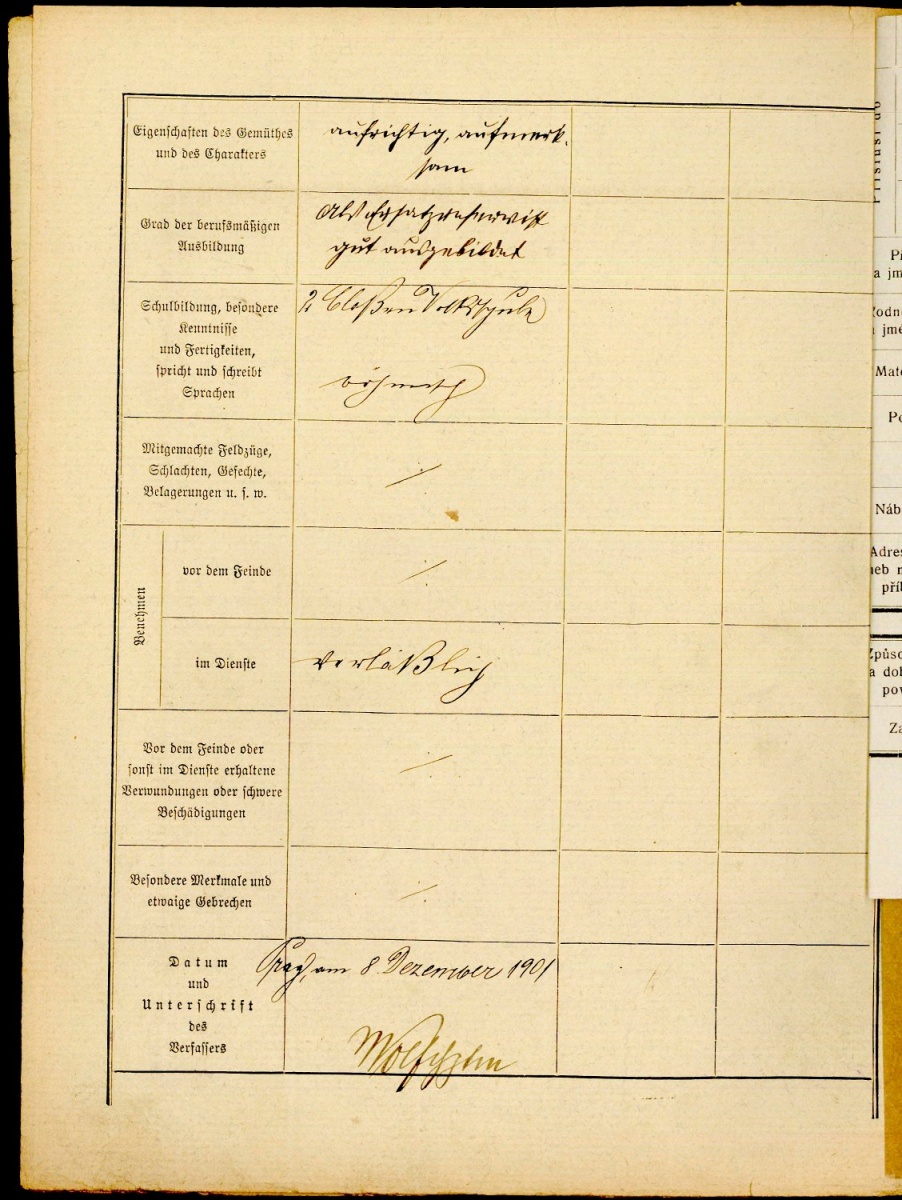 Eigenschaften des Gemüthes
und des Charakters
aufrichtig, aufmerk-
sam
Grad der berufsmäßigen
Ausbildung
Als Ersatzreservist
gut ausgebildet
Schulbildung, besondere
Kenntnisse
und Fertigkeiten,
spricht und schreibt
Sprachen
2 Claßen Volksschule
böhmisch
Mitgemachte Feldzüge,
Schlachten, Gefechte,
Belagerungen u. s. w.
·/.
Benehmen
vor dem Feinde
·/.
im Dienste
verläßlich
Vor dem Feinde oder
sonst im Dienste erhaltene
Verwundungen oder schwere
Beschädigungen
·/.
Besondere Merkmale und
etwaige Gebrechen
·/.
Datum
und
Unterschrift
des
Verfassers
Prag, am 8 Dezember 1901
Přísluší do
a jm
a jmé
Mate
Po
Náb
Adres
neb n
příb
Způso
a dob
pov
Za